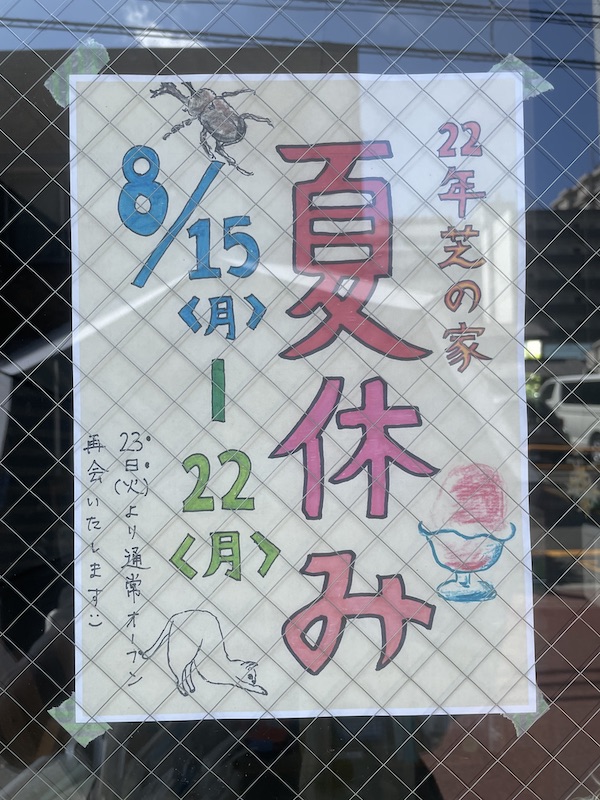 22年芝の家
夏休み
8/15
〈月〉
|
22
〈月〉
23日(火)より通常オープン
再会いたします:)